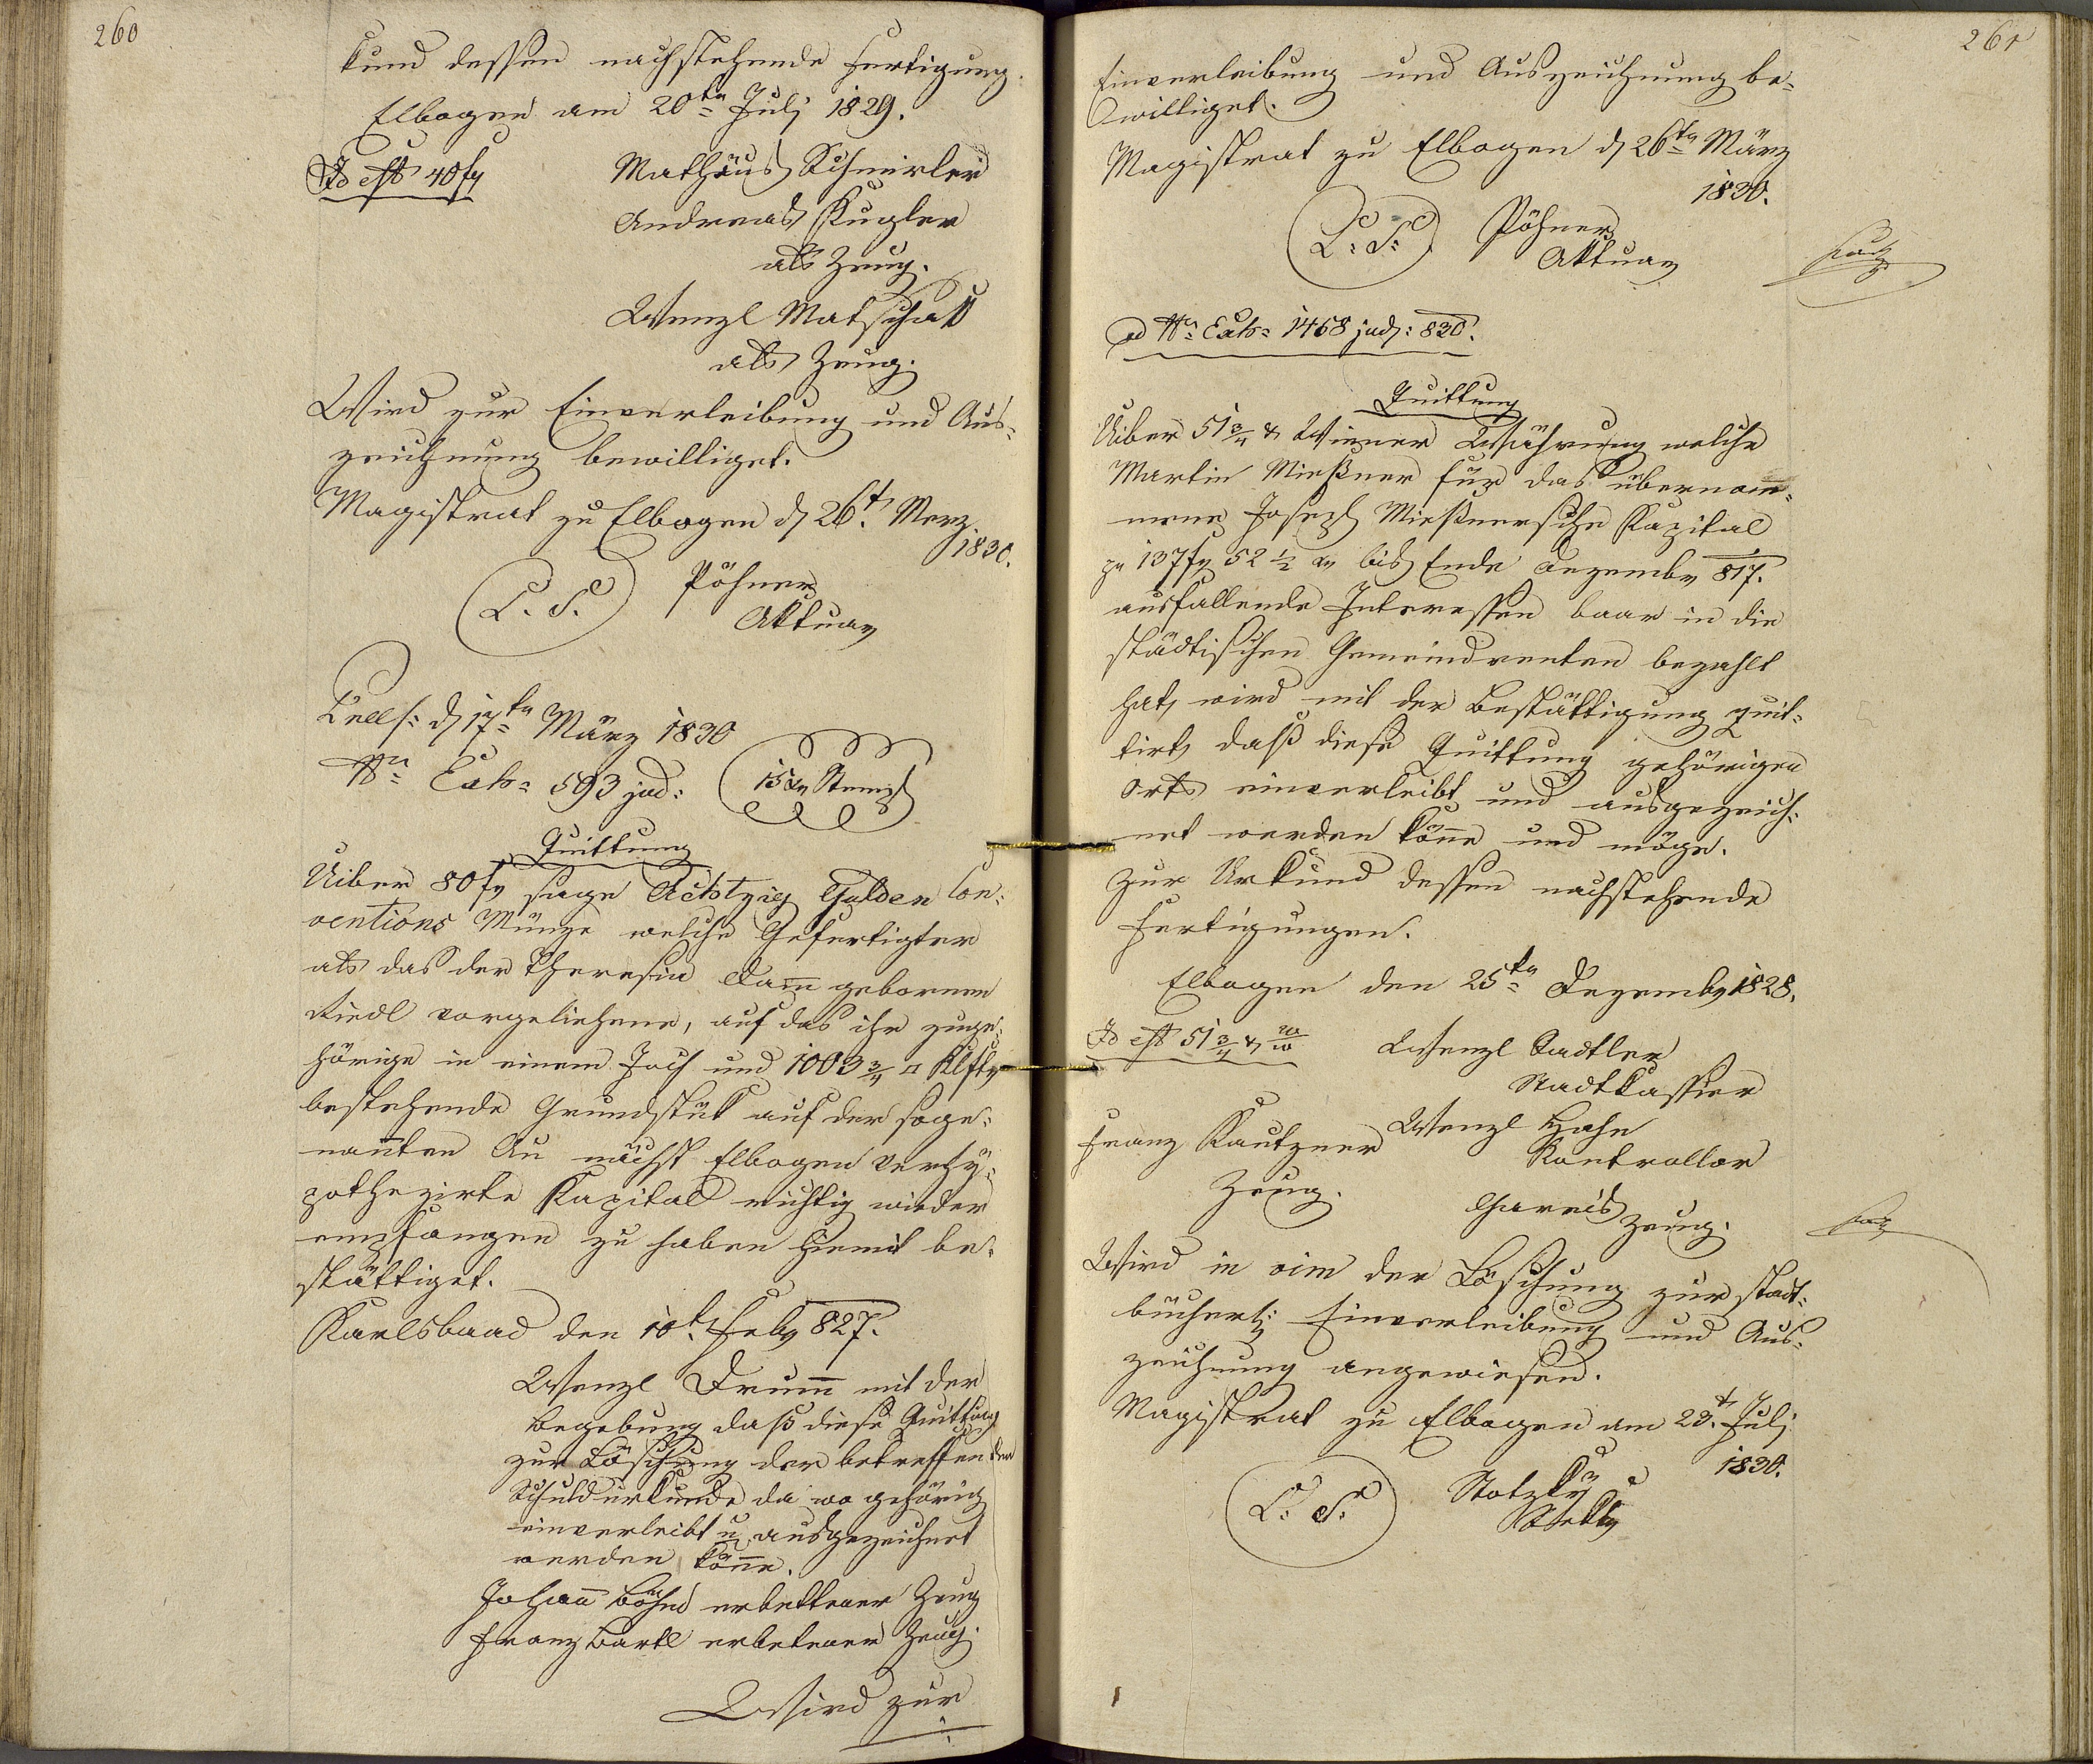 260
kund dessen nachstehende Fertigung.
Elbogen am 20tn Julj 1829.
Id est 40 fr
Mathäus Schmirler
Andreas Kugler
als Zeug.
Wenzl Matschak
als Zeug.
Wird zur Einverleibung und Aus=
zeichnung bewilliget.
Magistrat zu Elbogen d 26t. Merz
1830.
L. S.
Pöhner
Aktuar
d 17tn März 1830
Nr. Exh= 593 jud:
15 xr Stempl
Quittung
Uiber 80 fr sage Achtzig Gulden Con=
ventions Münze welche Gefertigter
als das der Theresia Dam̄ gebornen
Riedl vorgeliehene, auf das ihr zuge=
hörige in einem Joch und 1003 3/4 □ Klftr
bestehende Grundstük auf der soge=
nan̄ten Au nächst Elbogen verhÿ=
pothezirte Kapital richtig wieder
empfangen zu haben hiemit be=
stättiget.
Karlsbaad den 10t. Febr 827.
Wenzl Drum̄ mit der
Begebung daß diese Quittung
zur Löschung der betreffenden
Schuldurkunde da wo gehörig
einverleibt u. ausgezeichnet
werden kön̄e.
Johan̄ Böhm erbettener Zeug
Franz Bartl erbetener Zeug.
Wird zur
261
Einverleibung und Auszeichnung be=
williget.
Magistrat zu Elbogen d 26tn März
1830.
L. S.
Pöhner
Aktuar
ad Nr. Exh= 1458 jud: 830.
Quittung
Uiber 51 3/4 x Wiener Währung welche
Martin Mießner für das übernom=
mene Joseph Mießnersche Kapital
zu 137 fr 52 1/2 xr bis Ende Dezember 817.
ausfallende Interessen baar in die
städtischen Gemeindrenten bezahlt
hat, wird mit der Bestättigung quit=
tirt, daß diese Quittung gehörigen
Orts einverleibt und ausgezeich=
net werden kön̄e und möge.
Zur Urkund dessen nachstehende
Fertigungen.
Elbogen den 25tn Dezember 1828.
Id est 51 3/4 x
Wenzl Stadtler
Stadtkassier
Franz Kautzner
Zeug.
Wenzl Hahn
Kontrollor
Gareis Zeug.
Wird in vim der Löschung zur stadt=
bücherl: Einverleibung und Aus=
zeichnung angewiesen.
Magistrat zu Elbogen am 23t. Julj
1830.
L. S.
Stotzkÿ